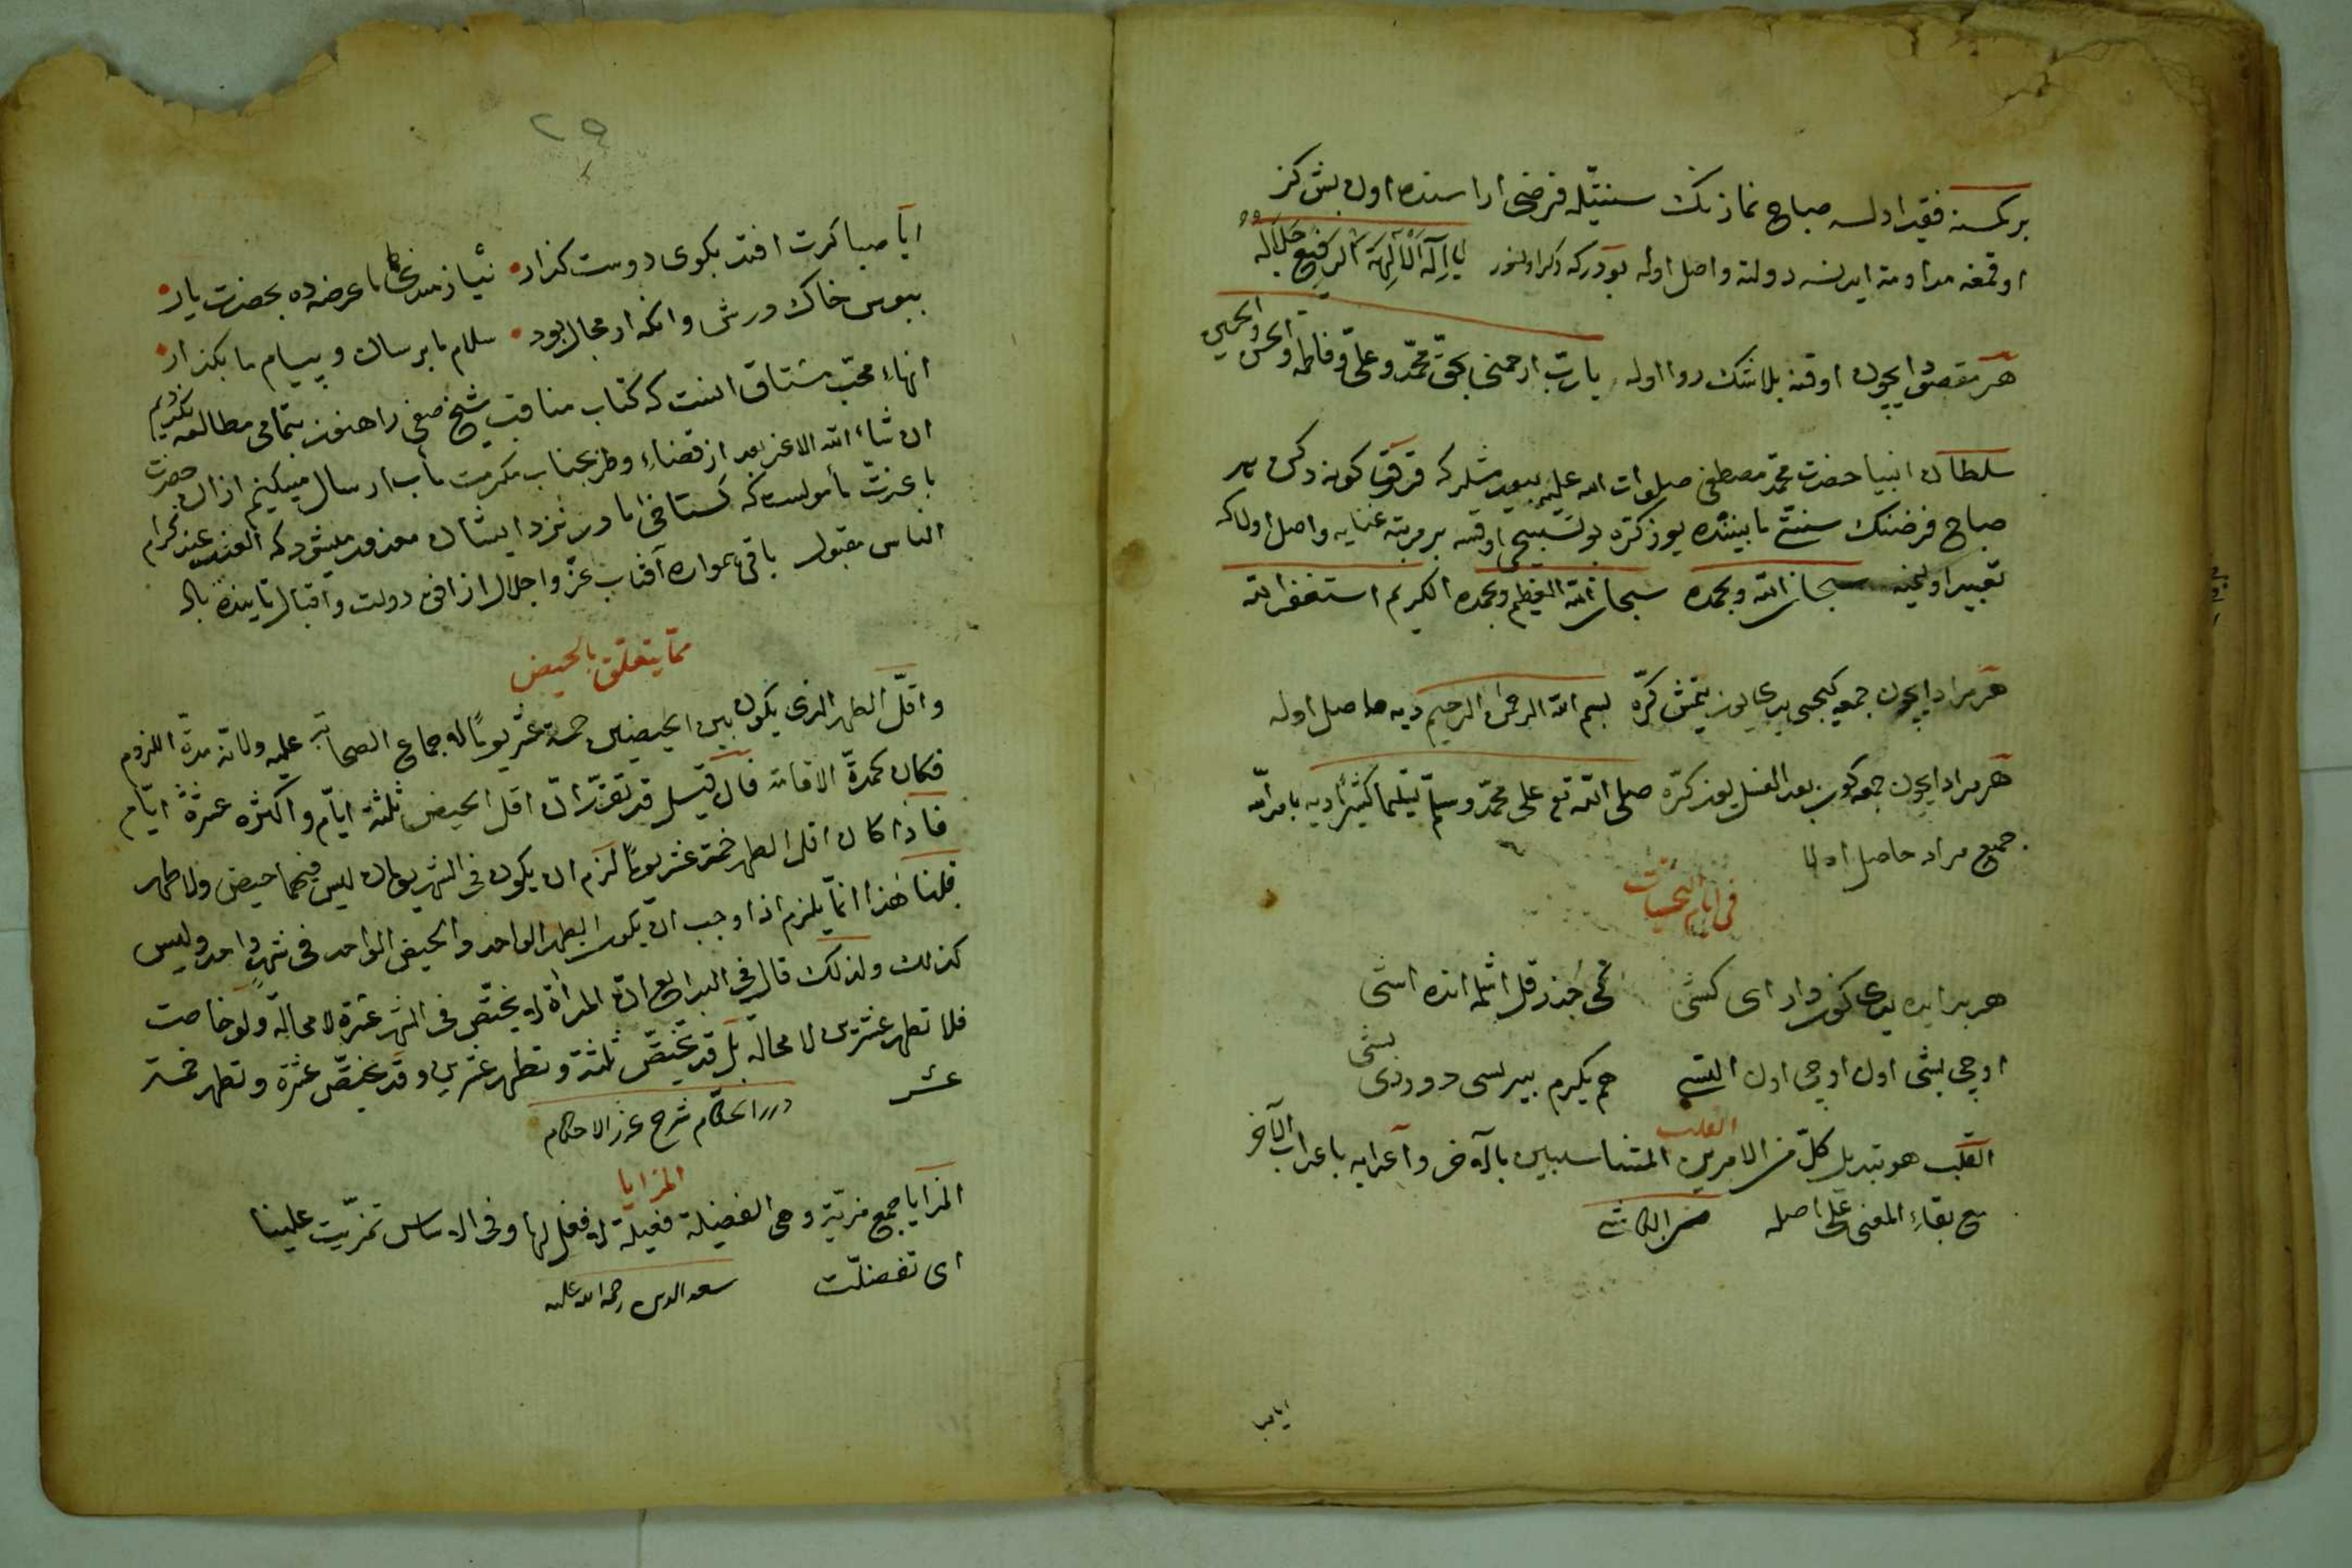 بر كمسنه فقير اولسه صباح نمازنك سنتيله فرضى اراسنده اون بش كز
اوقمغه مداومة ايدنه دولته واصل اوله بودركه ذكر اولنور يا اله الآلهة الرفيع جلاله
هر مقصود ايچون اوقنه بلا شك روا اوله يا رب ارحمنى بحق محمد وعلى وفاطمه والحسن والحسين
سلطان انبيا حضرت محمد مصطفى صلوات الله عليه بيورمشلركه قرق كونه دكين هر
صباح فرضنك سنتى مابيننده يوز كره بو تسبيحى اوقسه بر مرتبه غنايه واصل اولاكه
تعبير اولنميه سبحان الله وبحمده سبحان الله العظيم وبحمده الكريم استغفر الله
هر مراد ايچون جمعه كيجه سى يدى يوز يتمش كره بسم الله الرحمن الرحيم ديه حاصل اوله
هر مراد ايچون جمعه كون بعد الغسل يوز كره صلى الله تع على محمد وسلم تسليما كثيرا ديه بامر الله
جميع مراد حاصل اولا
فى ايام النحسات
هر بر ايده يدى كون وار اى كشى قمى حذر قل اشلمه انده اشى
اوچى بشى اون اوچى اون التسى هم يكرم بيرلسى دوردى بشى
القلب
القلب هو تبديل كل من الامرين المتناسبين بالآخر واعرابه باعراب الآخر
مع بقاء المعنى على اصله
ايا صبا
٢٥
ايا صبا كرت افتد بكوى دوست كذار نياز مندى ما عرضه ده بحضرت يار
ببوس خاك درش وانكه ار مجال بود سلام ما برسان و پيام ما بكذار
انهاء محب مشتاق اينست كه كتاب مناقب شيخ صفى را هنوز بتمامى مطالعه نكرديم
ان شاء الله الاعز بعد از قضاء وطر بجناب مكرمت مأب ارسال ميكنيم از ان حضرت
با عزت مأمولست كه كستاخى ما در نزد ايشان معذور ميشود كه العذر عند كرام
الناس مقبول باقى همواره آفتاب عز واجلال از افق دولت واقبال تابنده باد
مما يتعلق بالحيض
واقل الطهر الذى يكون بين الحيضين خمسة عشر يوما لاجماع الصحابة عليه ولانه مدة اللزوم
فكان كمدة الاقامة فان قيل قد تقرر ان اقل الحيض ثلثة ايام واكثره عشرة ايام
فاذا كان اقل الطهر خمسة عشر يوما لزم ان يكون فى الشهر يومان ليس فيهما حيض ولا طهر
قلنا هذا انما يلزم اذا وجب ان يكون الطهر الواحد والحيض الواحد فى شهر واحد وليس
كذلك ولذلك قال فى البدايع ان المرأة لا تحيض فى الشهر عشرة لا محالة ولو حاضت
فلا تطهر عشرين لا محالة بل قد تحيض ثلثة وتطهر عشرين وقد تحيض عشرة وتطهر خمسة
عشر درر الحكام شرح غرر الاحكام
المزايا
المزايا جمع مزية وهى الفضيلة فعيلة لا فعل لها وفى الاساس تمزيت علينا
اى تفضلت سعد الدين رحمة الله عليه